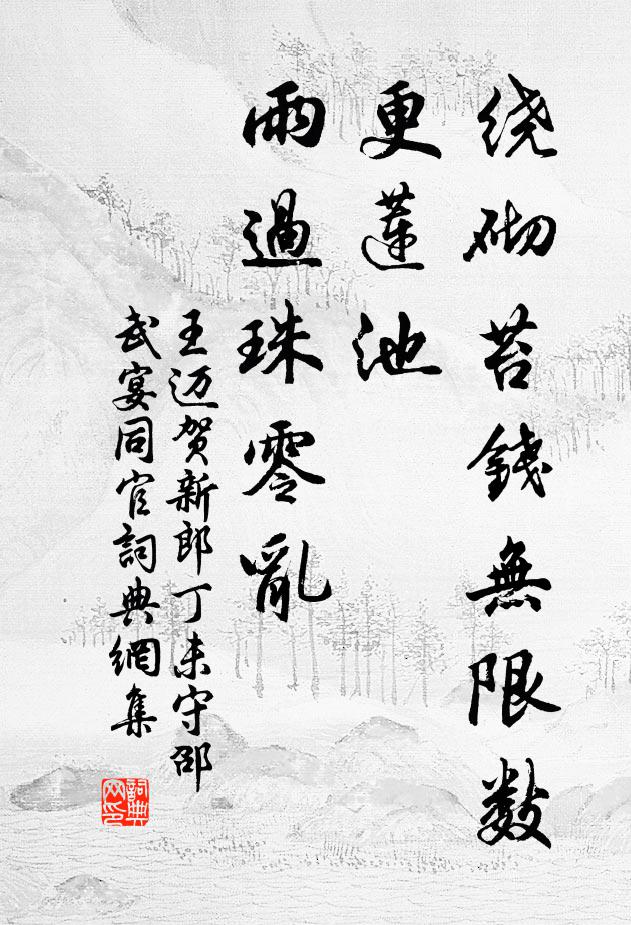 绕砌苔錢無限數
更蓮池
雨過珠零亂
王迈贺新郎丁未守邵
武宴同官詞典網集
詞典
网印